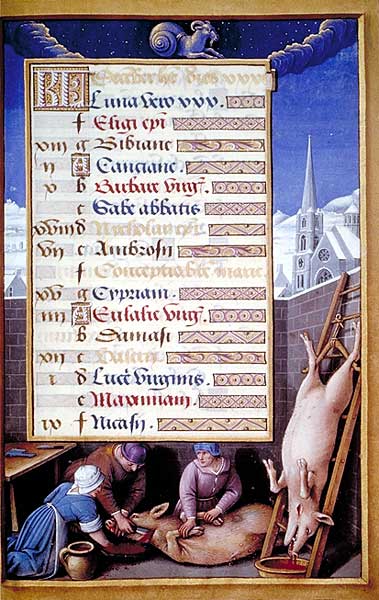 KL December habet dies xxxi
Luna vero xxx.
f Eligi epi
xiii g Bibiane
ii A Canciane.
x b Barbare virgs.
c Sabe abbatis
xviii d Nicholai epi.
vii e Ambrosii
f Conceptio bte marie.
xv g Cypriani.
iiii A Eulalie virgs.
b Damasi
xii c
i d Lucie virginis.
e Maximiani.
ix f Nicasii.